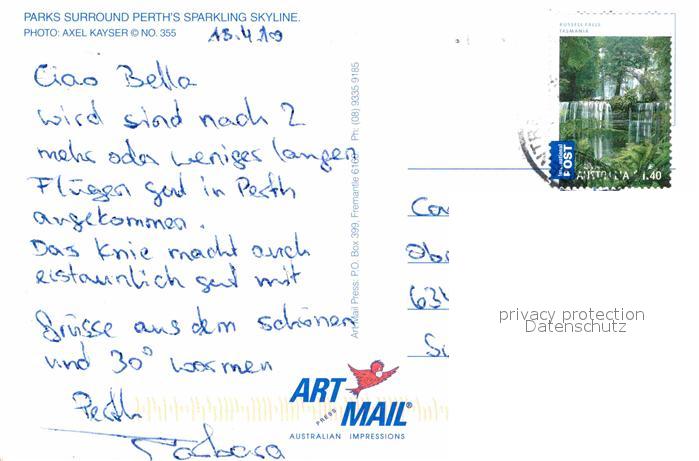 PARKS SURROUND PERTH'S SPARKLING SKYLINE.
PHOTO: AXEL KAYSER © NO. 355
13.4.10
Ciao Bella
wird sind nach 2
mehr oder weniger langen
Flügen gut in Perth
angekommen.
Das Knie macht auch
erstaunlich gut mit
Grüsse aus dem schönen
und 30° warmen
Perth
Art Mail Press: P.O. Box 399, Fremantle Ph: (08) 9335 9185
RUSSELL FALLS
TASMANIA
International
POST
AUSTRALIA $1.40
privacy protection
Datenschutz
ART
PRESS
MAIL®
AUSTRALIAN IMPRESSIONS